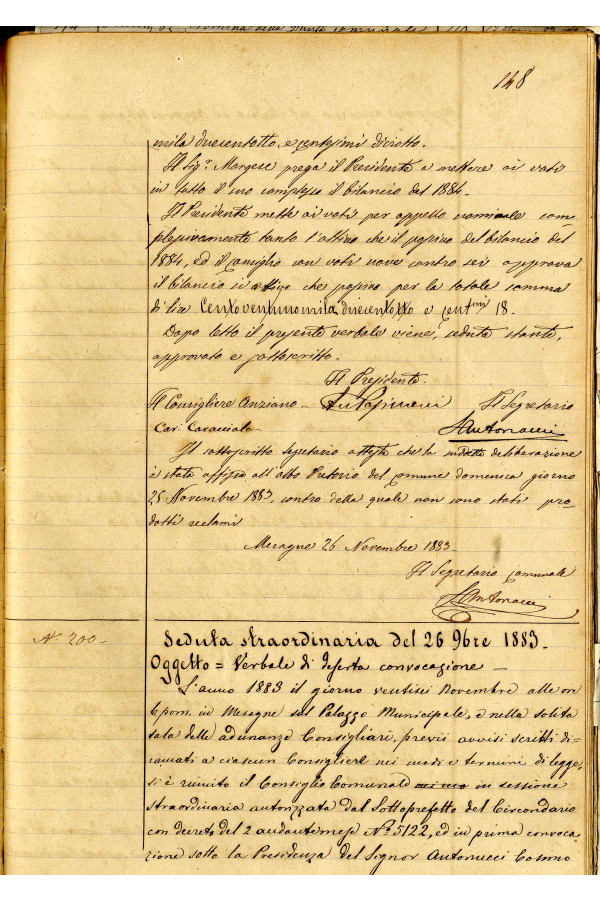 148
mila duecentotto, e centesimi diciotto.
Il Sig.r Margese prega il Presidente a mettere ai voti
in tutto il suo complesso il bilancio del 1884.
Il Presidente mette ai voti per appello nominale com-
plessivamente tanto l'attivo che il passivo del bilancio del
1884, ed il Consiglio con voti nove contro sei approva
il bilancio sì attivo che passivo per la totale somma
di lire Centoventunomila duecentotto e cent.mi 18.
Dopo letto il presente verbale viene, seduta stante,
approvato e sottoscritto.
Il Presidente
Il Consigliere Anziano Il Segretario
Car. Caracciolo Antonucci
Il sottoscritto Segretario attesta che la deliberazione
è stata affissa all'albo Pretorio del Comune domenica giorno
25 Novembre 1883, contro della quale non sono stati pro-
dotti reclami
Mesagne 26 Novembre 1883.
Il Segretario Comunale
Antonucci
N. 200 -
Seduta straordinaria del 26 9bre 1883.
Oggetto = Verbale di deserta convocazione -
L'anno 1883 il giorno ventisei Novembre alle ore
6 pom. in Mesagne sul Palazzo Municipale, e nella solita
sala delle adunanze Consigliari, previi avvisi scritti di-
ramati a ciascun Consigliere nei modi e termini di legge,
si è riunito il Consiglio Comunale in sessione
straordinaria autorizzata dal Sottoprefetto del Circondario
con decreto del 2 andante mese N.° 5122, ed in prima convoca
zione sotto la Presidenza del Signor Antonucci Cosimo